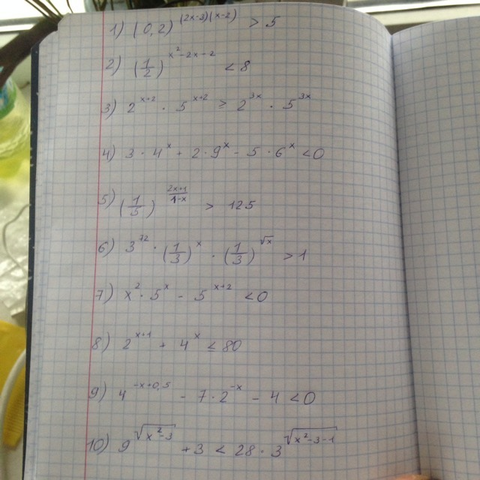 1) (0,2)^{(2x-3)(x-2)} > 5
2) (1/2)^{x²-2x-2} < 8
3) 2^{x+2} · 5^{x+2} ≥ 2^{3x} · 5^{3x}
4) 3 · 4^x + 2 · 9^x - 5 · 6^x < 0
5) (1/5)^{(2x+1)/(1-x)} > 125
6) 3^{72} · (1/3)^x · (1/3)^{√x} > 1
7) x² · 5^x - 5^{x+2} < 0
8) 2^{x+1} + 4^x ≤ 80
9) 4^{-x+0,5} - 7 · 2^{-x} - 4 < 0
10) 9^{√(x²-3)} + 3 < 28 · 3^{√(x²-3-1)}